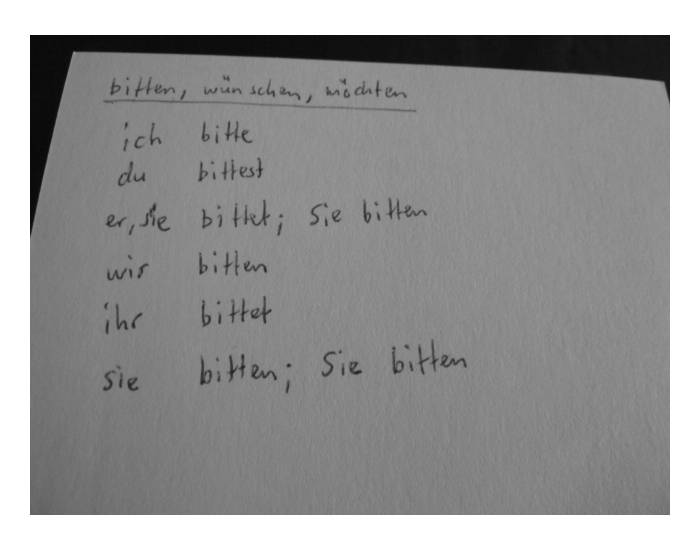 bitten, wünschen, möchten
ich bitte
du bittest
er, sie bittet; Sie bitten
wir bitten
ihr bittet
sie bitten; Sie bitten